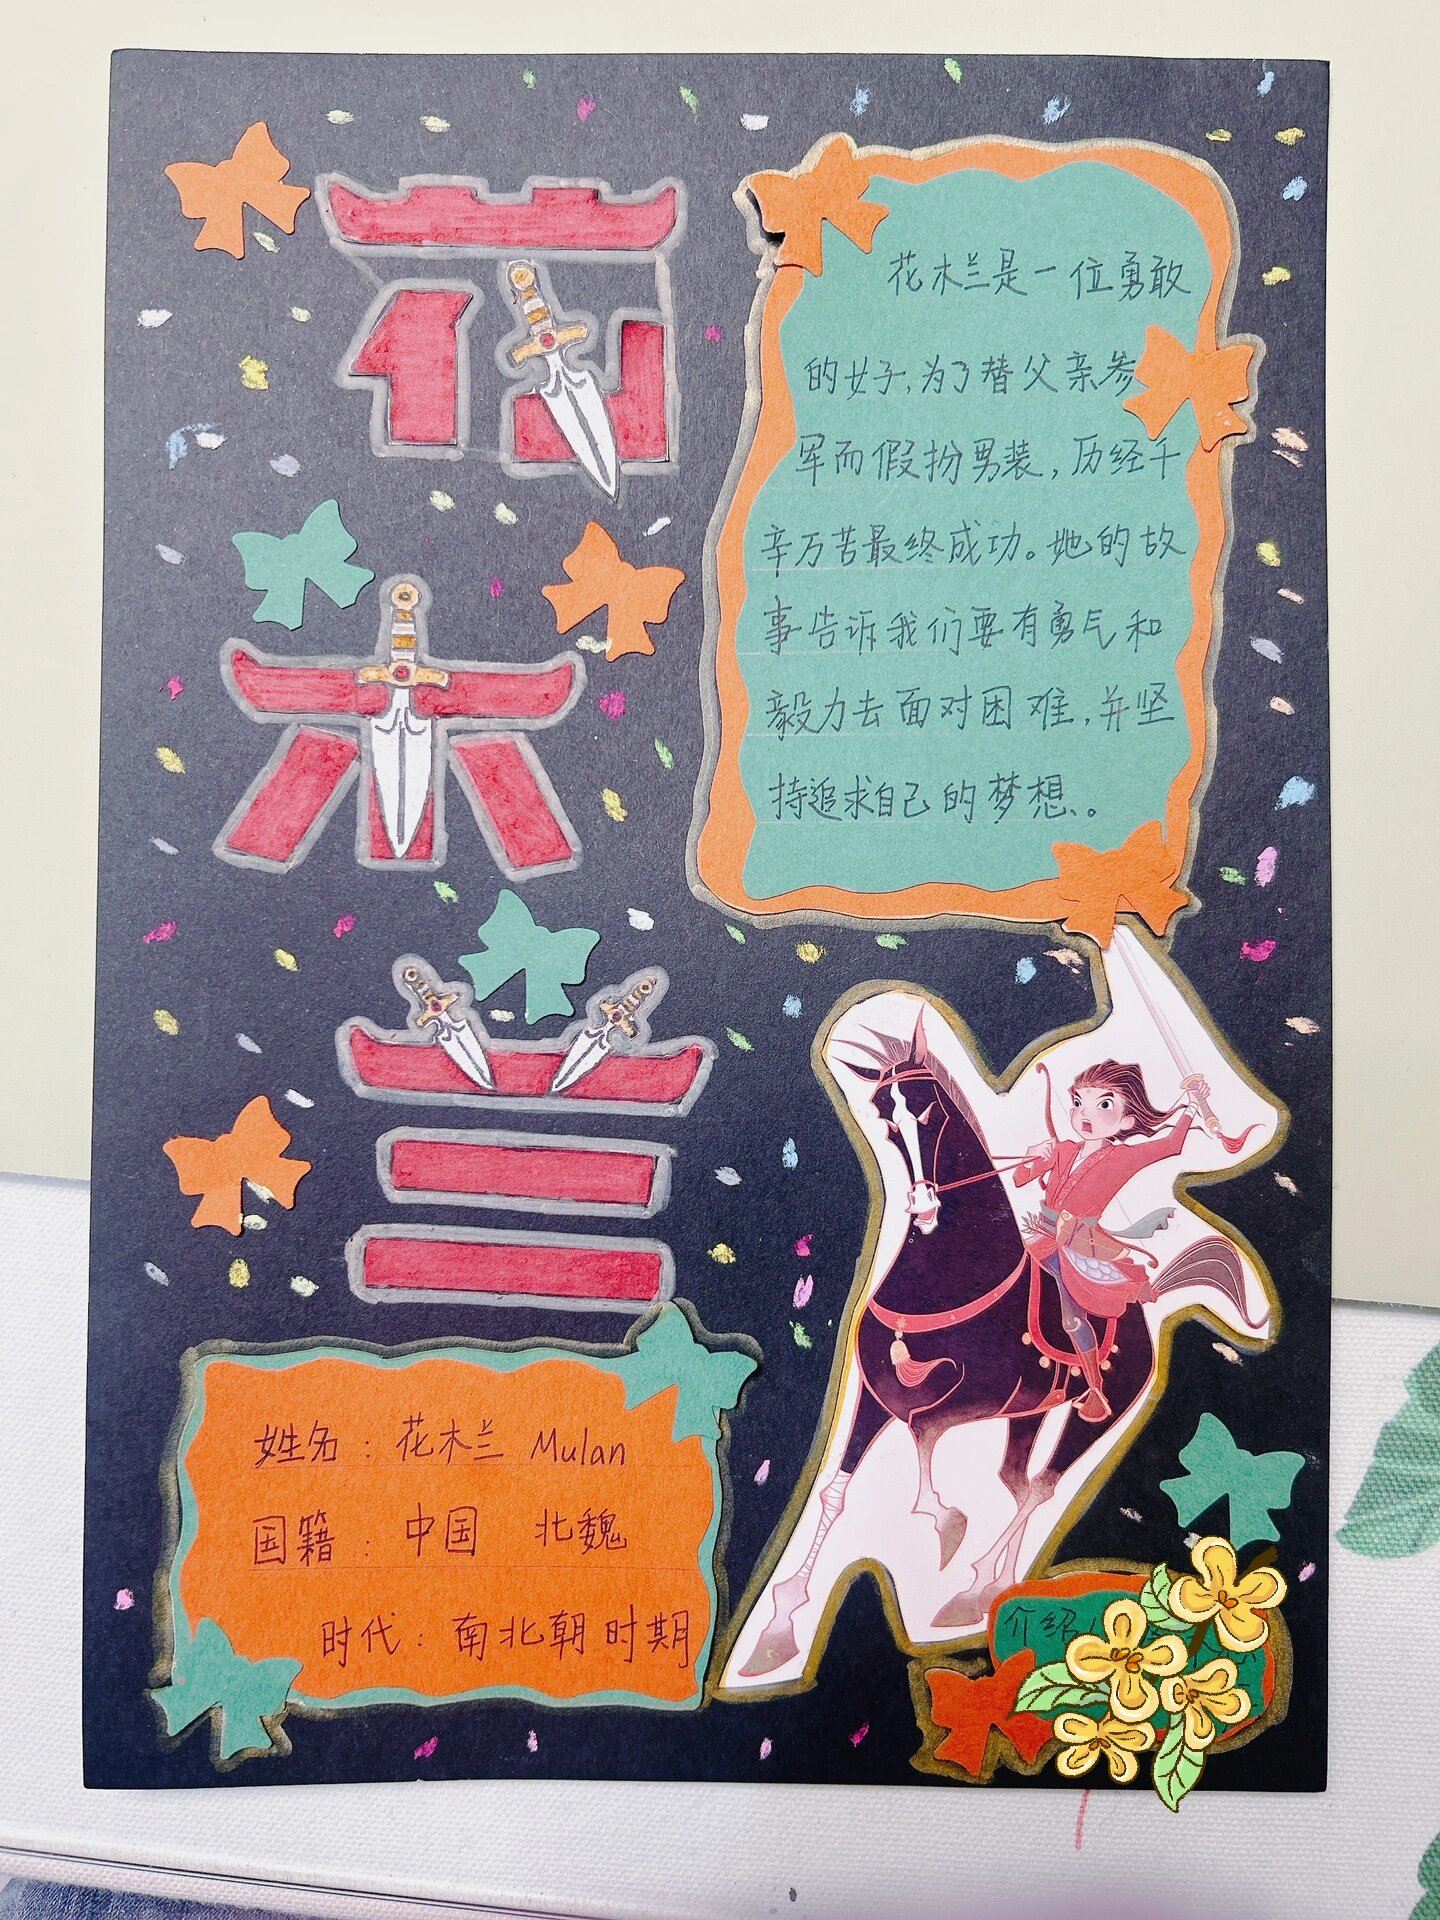 花木兰
花木兰是一位勇敢
的女子,为了替父亲参
军而假扮男装,历经千
辛万苦最终成功。她的故
事告诉我们要有勇气和
毅力去面对困难,并坚
持追求自己的梦想。
姓名:花木兰 Mulan
国籍:中国 北魏
时代:南北朝时期
介绍